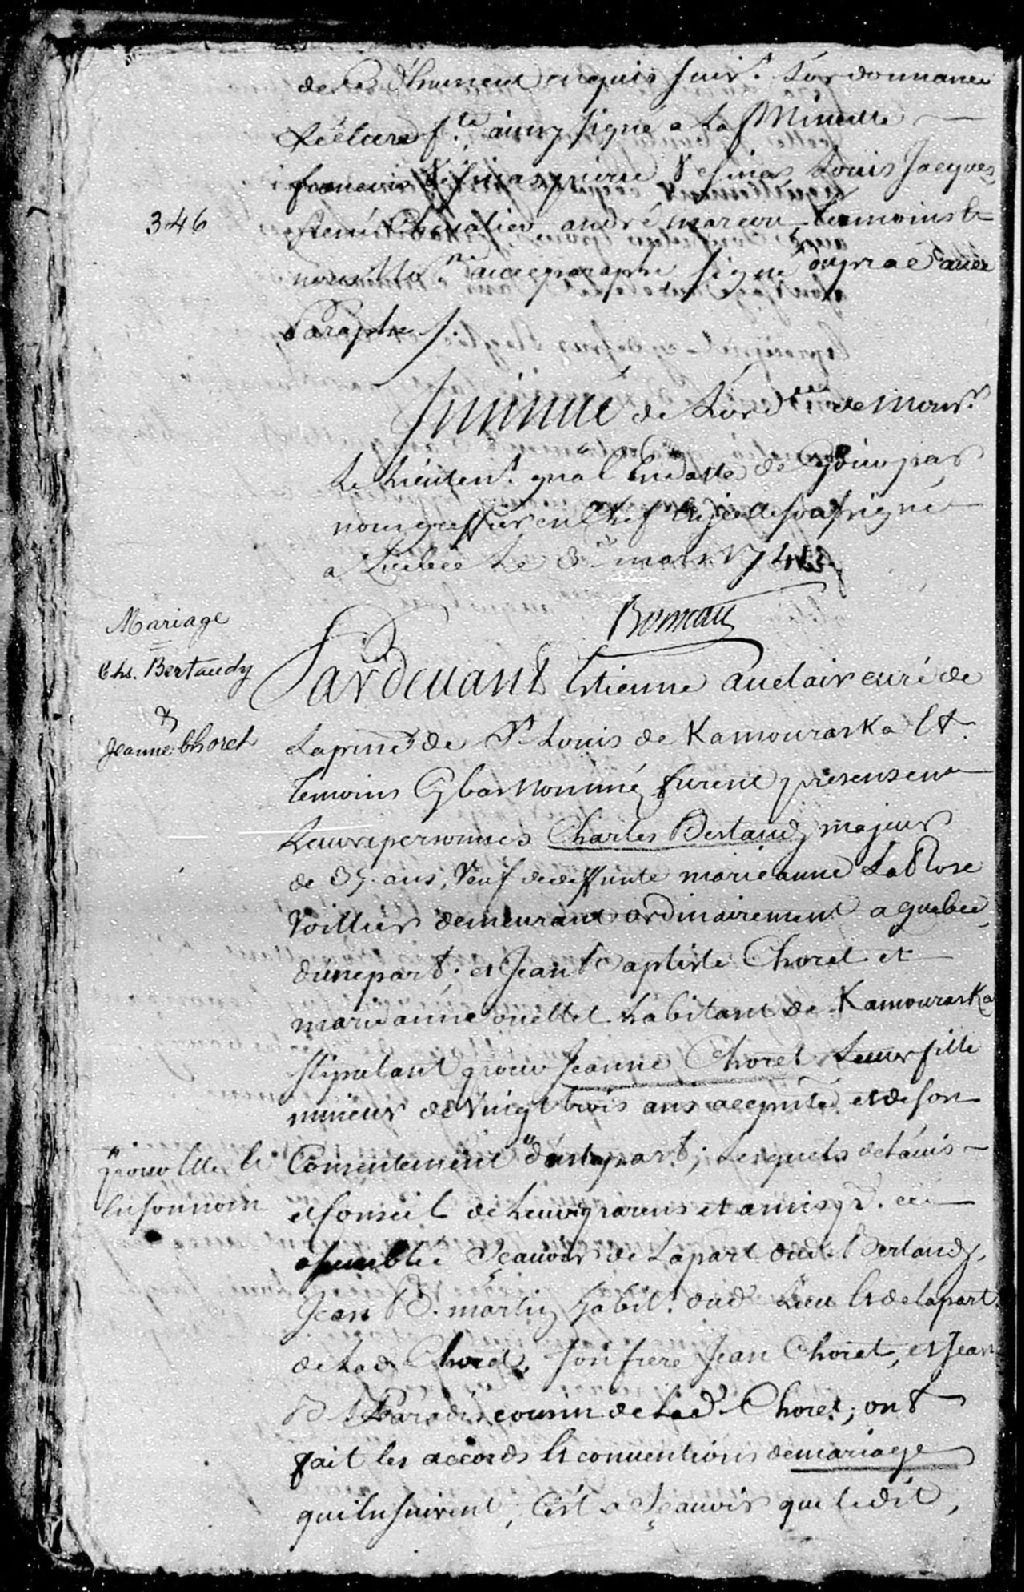 de ce Dhument enquis suiv.t L'ordonnance
Lecture f.te ainsy signé a La Minutte
françois Louis Jacques
346
René Chevalier andré marcou, temoins &
nous avec paraphe signé avec
Paraphe /.
Insinué de L'or.d.ce de Mons.r
Le Lieuten.t gnâl En datte de par
nous greffier en Chef d'icelle soussigné
a Quebec Le 3.e mars 174
Boineau
Mariage
Chs. Bertaudy
&
Jeanne Choret
Pardevant Etienne auclair curé de
La par.sse de St. Louis de Kamouraska Et
temoins Cy bas Nommé, furent presens en
Leurs personnes Charles Bertaudy majeur
de 35 ans, Veuf de deffunte marie anne La Rose
Voillier demeurant ordinairement a quebec,
d'une part; et Jean Baptiste Choret et
marie anne ouellet habitant de Kamouraska
stipulant pour Jeanne Choret Leur fille
mineur de Vingt trois ans et de son
pour Elle &
en son nom
Consentement d'autre part; Lesquels de L'avis
et Conseil de Leurs parens et amis p.r ce
assemblée Sçauoir de La part dud. Bertaudy,
Jean B. martin habit.t dud. Lieu Et de La part
de Lad. Choret, son frere Jean Choret, et Jean
B. Paradis cousin de Lad. Choret; ont
fait les accords Et conuentions de mariage
qui En suivent, C'est a Sçauoir que Ledit,